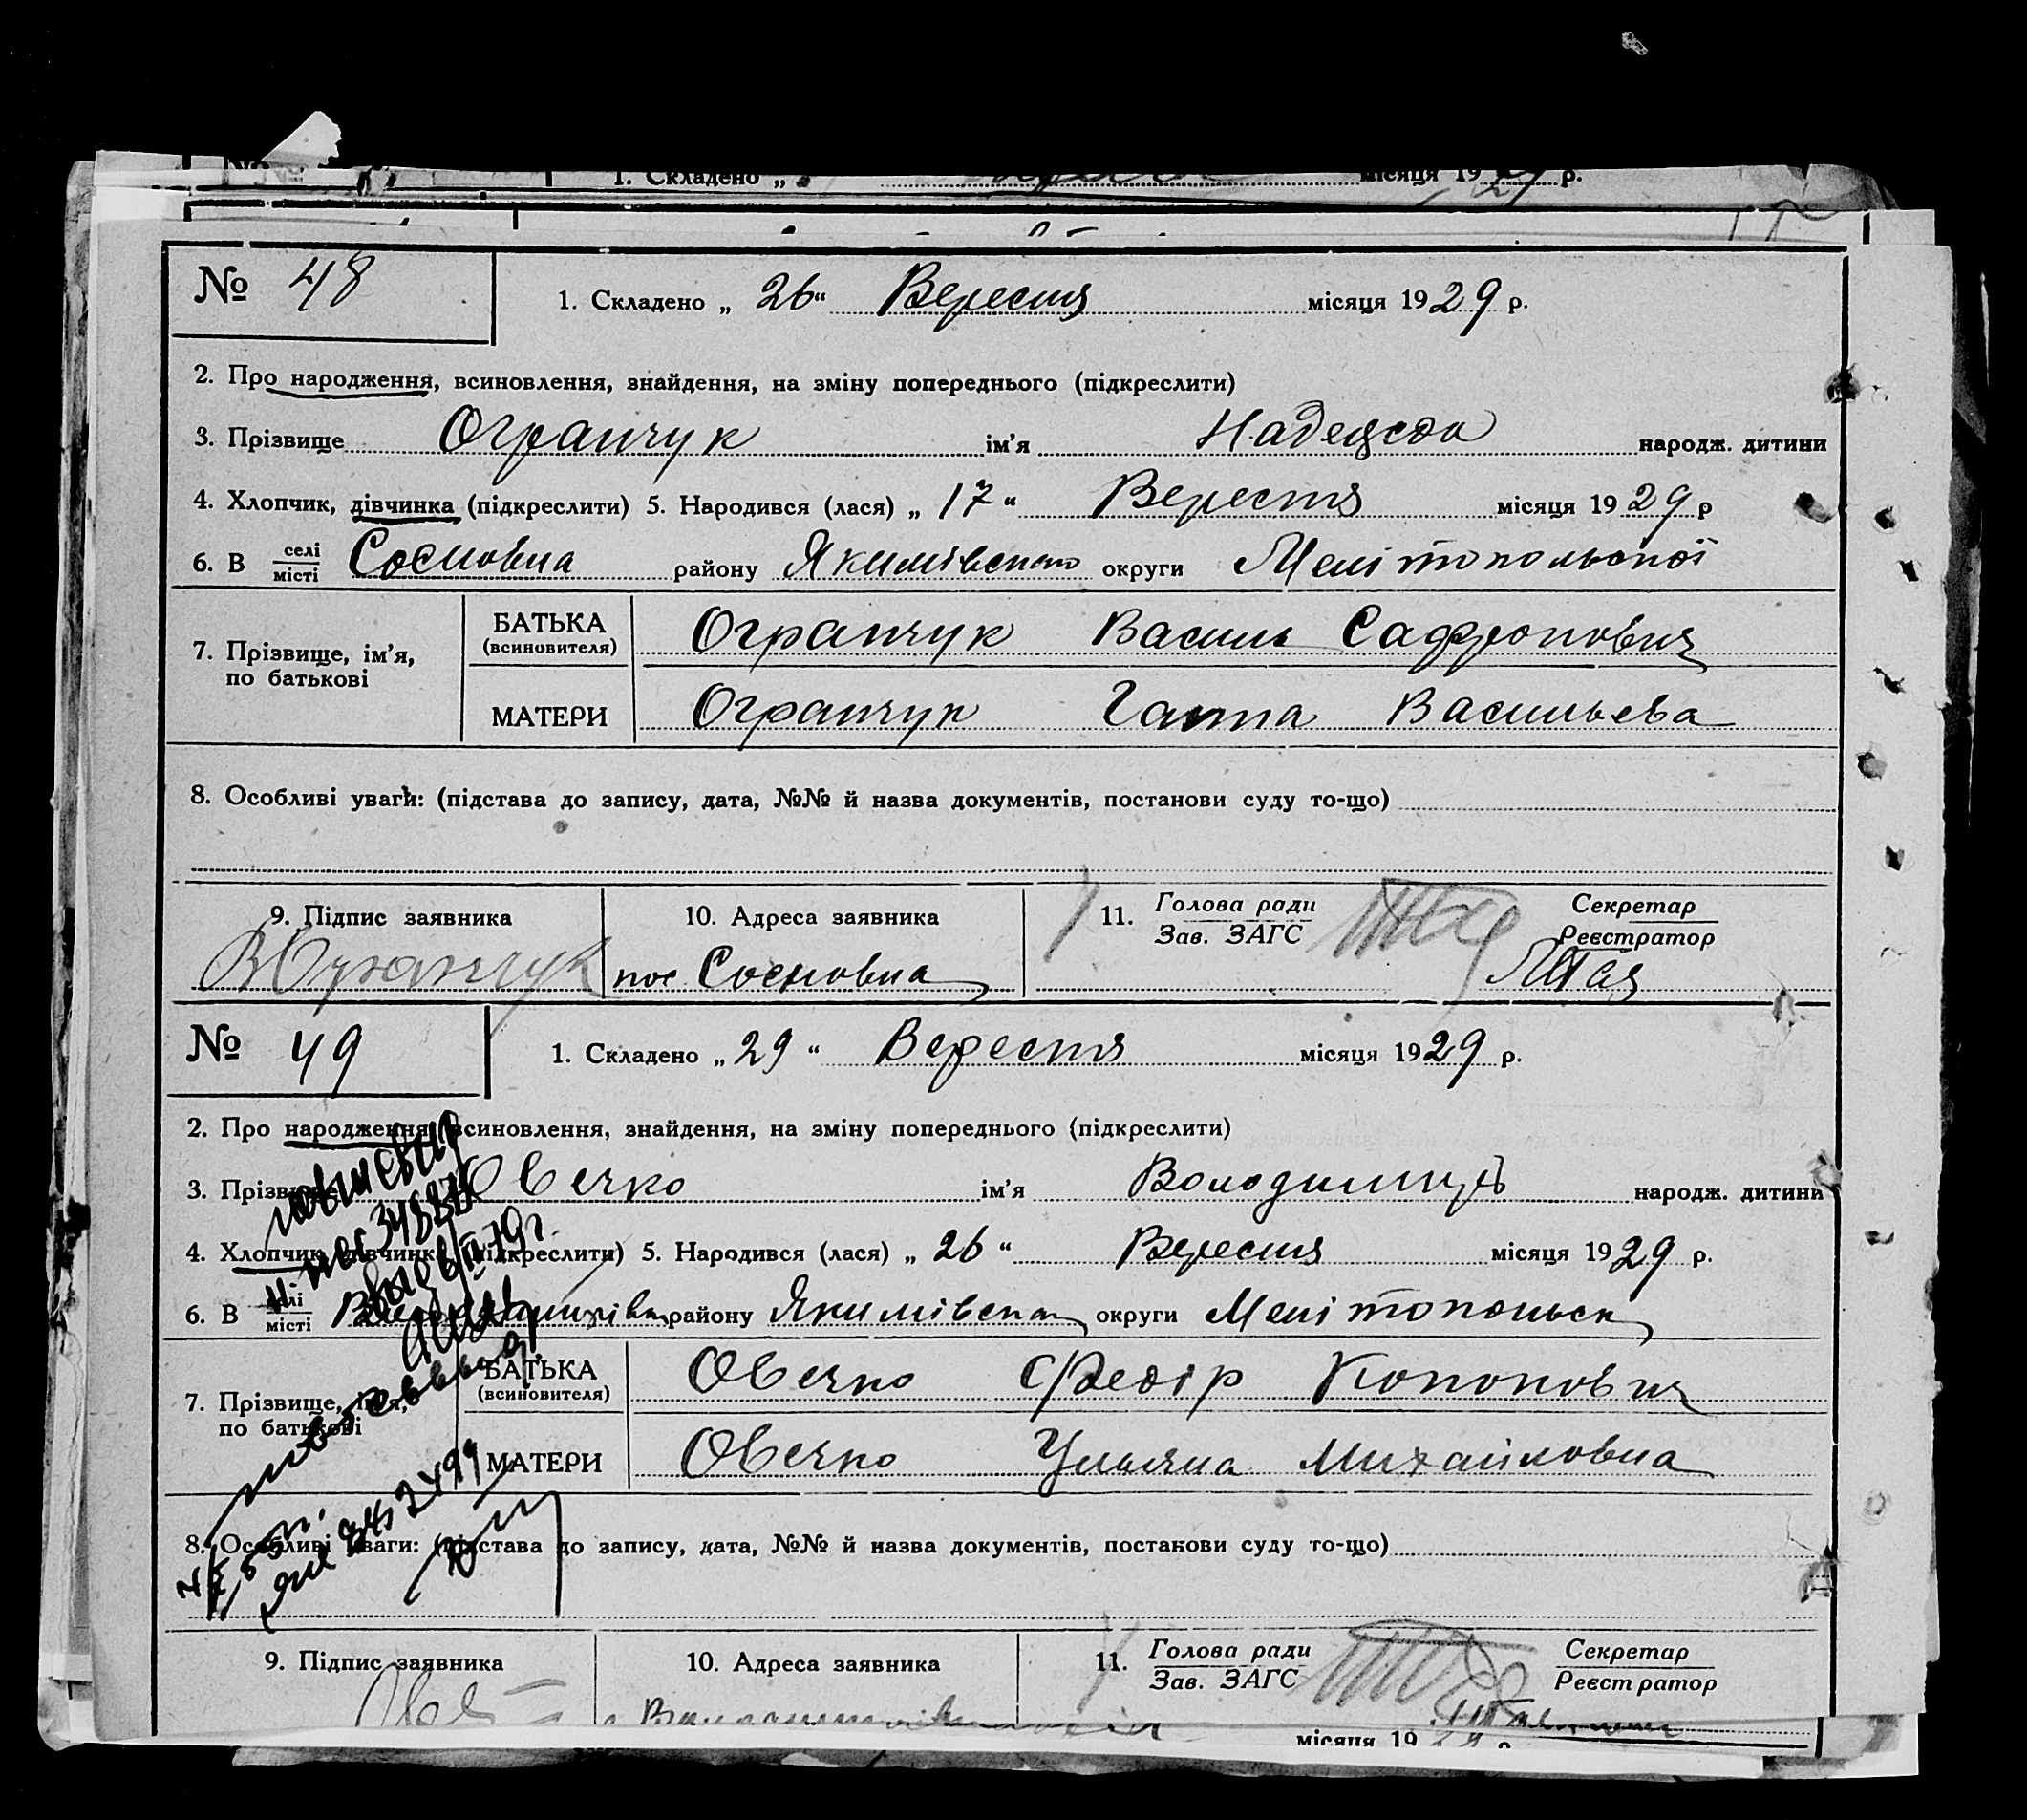 1. Складено „ місяця 19 р.
№ 48
1. Складено „ 26 “ Вересня місяця 1929 р.
2. Про народження, всиновлення, знайдення, на зміну попереднього (підкреслити)
3. Прізвище Огранчук ім’я Надежда народж. дитини
4. Хлопчик, дівчинка (підкреслити) 5. Народився (лася) „ 17 “ Вересня місяця 1929 р
6. В селі місті Сосновка району Якимівського округи Мелітопольської
7. Прізвище, ім’я, по батькові
БАТЬКА (всиновителя) Огранчук Василь Сафронович
МАТЕРИ Огранчук Ганна Васильева
8. Особливі уваги: (підстава до запису, дата, №№ й назва документів, постанови суду то-що)
9. Підпис заявника
10. Адреса заявника
11. Голова ради Зав. ЗАГС
Секретар Реєстратор
пос. Сосновка
№ 49
1. Складено „ 29 “ Вересня місяця 1929 р.
2. Про народження, всиновлення, знайдення, на зміну попереднього (підкреслити)
3. Прізвище Овечко ім’я Володимир народж. дитини
4. Хлопчик, дівчинка (підкреслити) 5. Народився (лася) „ 26 “ Вересня місяця 1929 р.
6. В селі місті району Якимівська округи Мелітопольськ
7. Прізвище, ім’я, по батькові
БАТЬКА (всиновителя) Овечко Федір Кононович
МАТЕРИ Овечко Ульяна Михайловна
8. Особливі уваги: (підстава до запису, дата, №№ й назва документів, постанови суду то-що)
9. Підпис заявника
10. Адреса заявника
11. Голова ради Зав. ЗАГС
Секретар Реєстратор
місяця 19